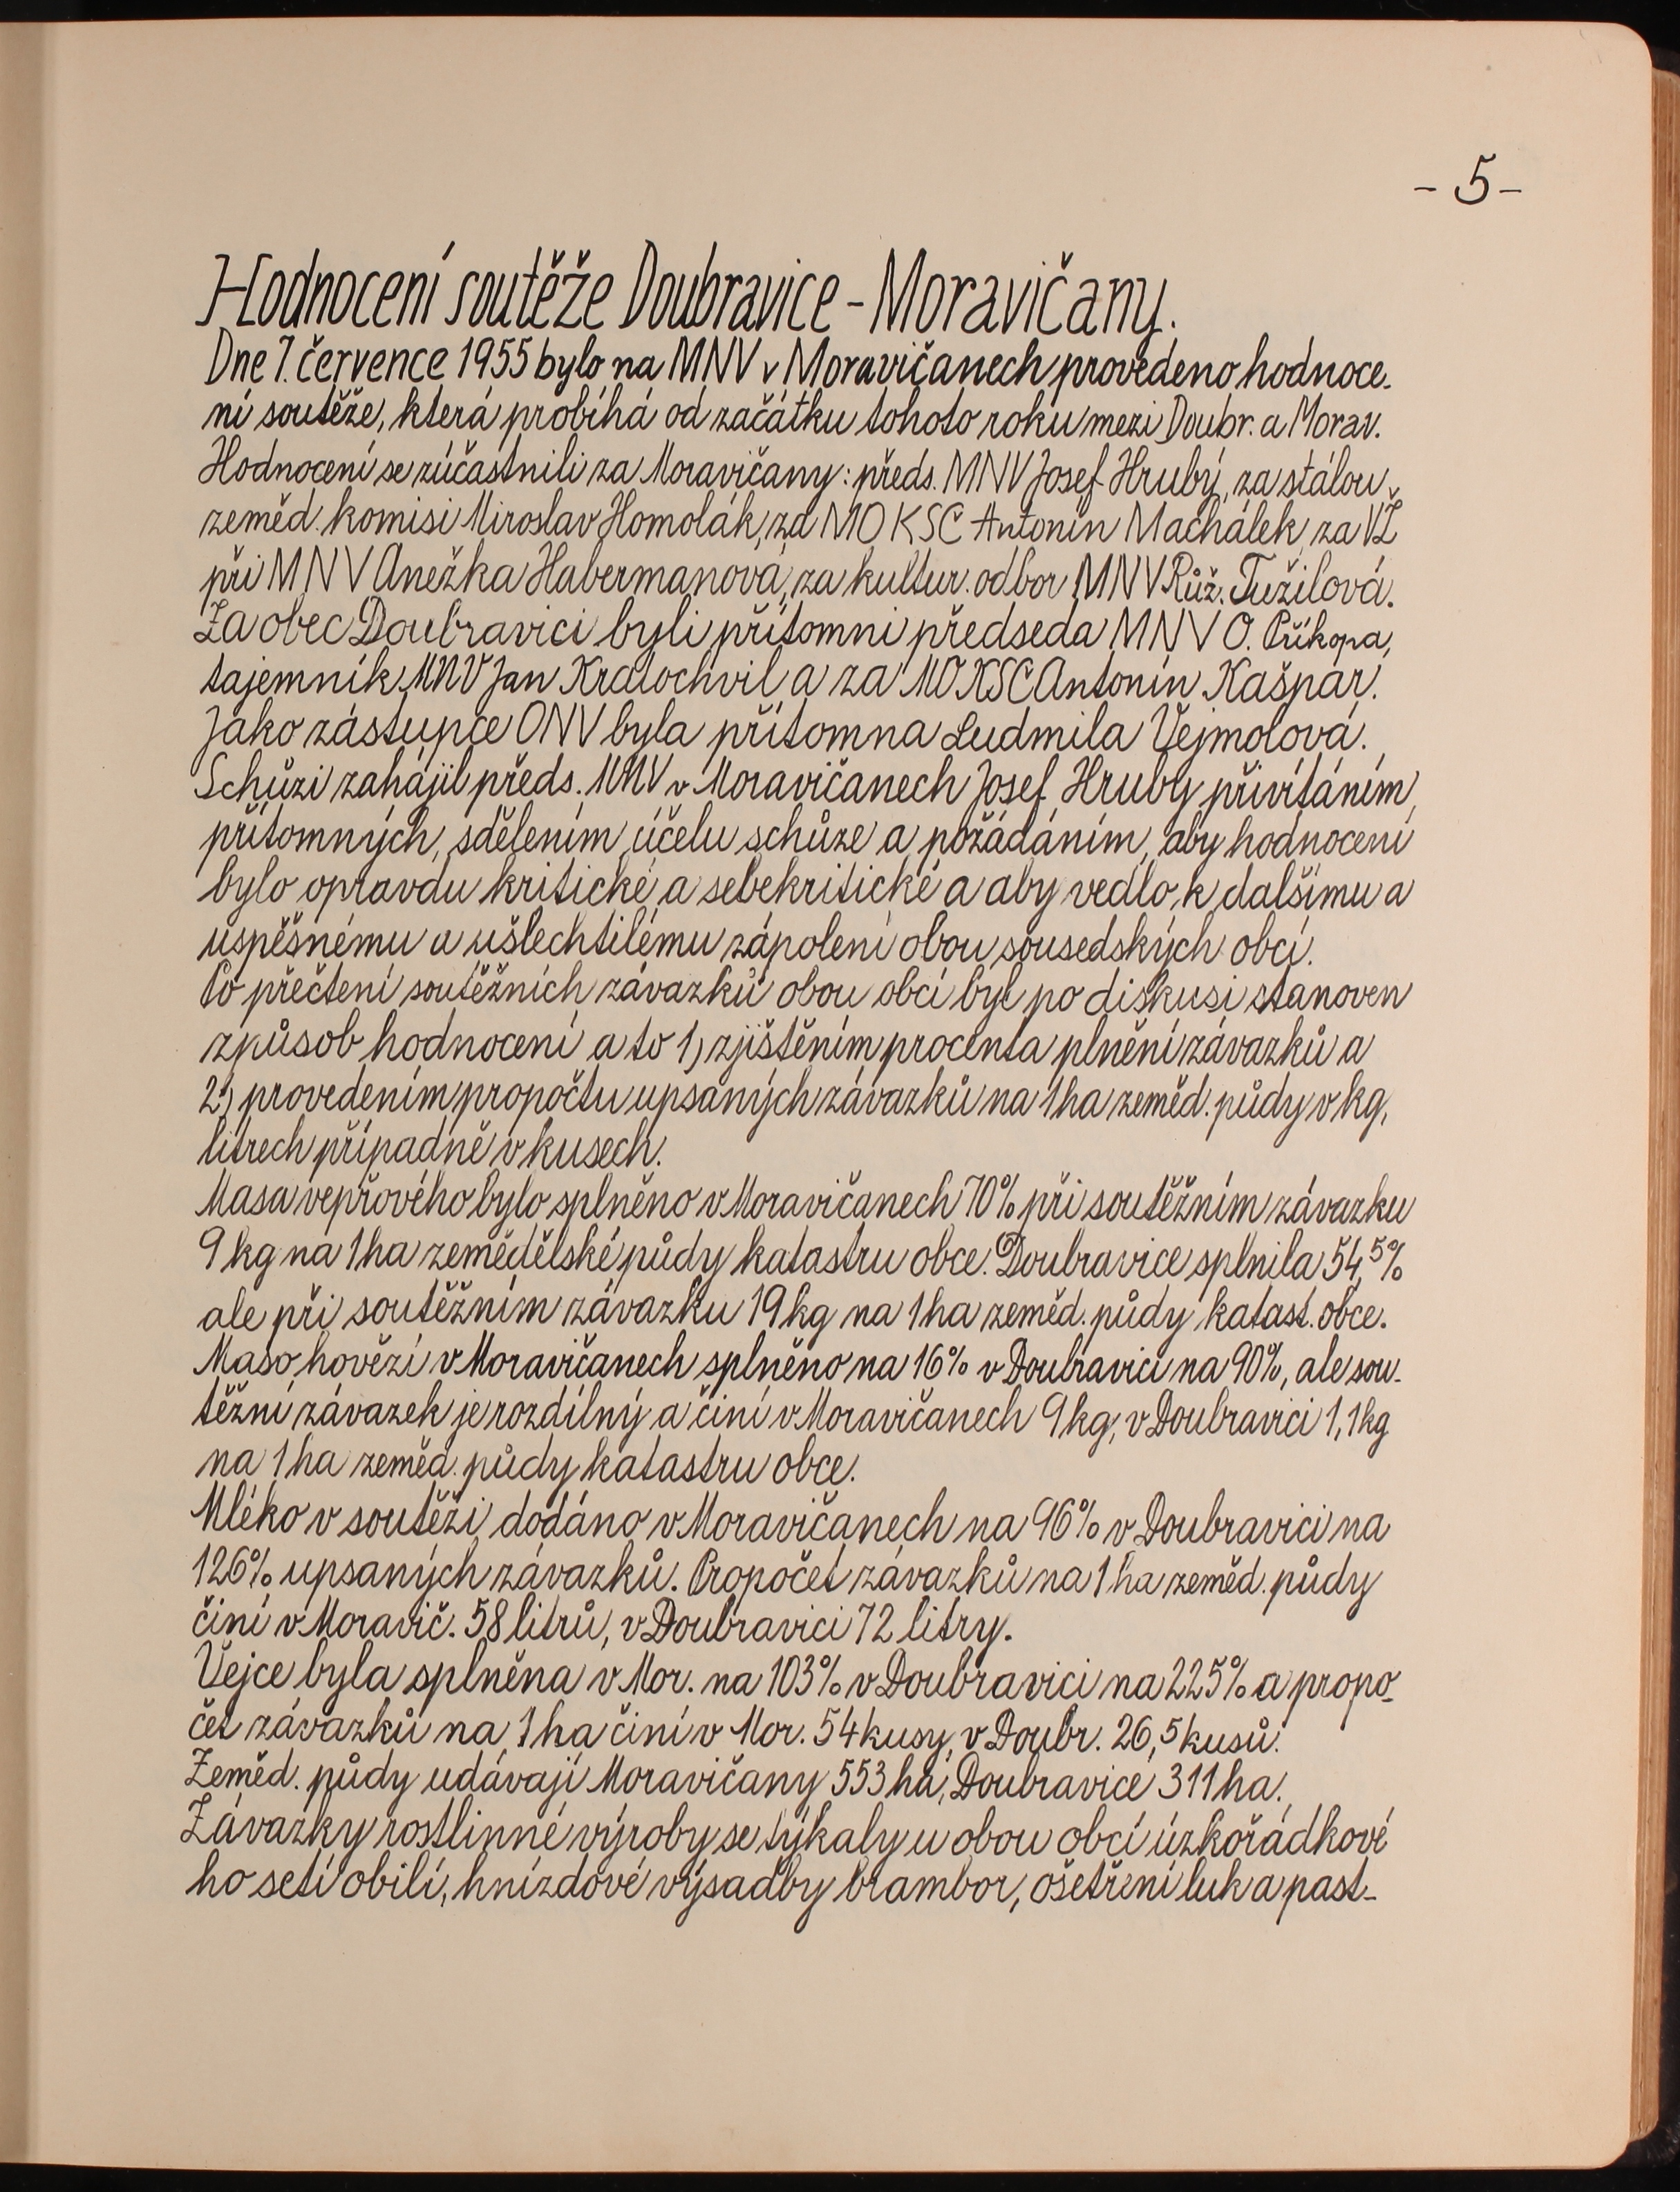 - 5 -
Hodnocení soutěže Doubravice - Moravičany.
Dne 7. července 1955 bylo na MNV v Moravičanech provedeno hodnoce-
ní soutěže, která probíhá od začátku tohoto roku mezi Doubr. a Morav.
Hodnocení se zúčastnili za Moravičany: předs. MNV Josef Hrubý, za stálou
zeměd. komisi Miroslav Homolák, za MO KSČ Antonín Machálek, za VŽ
při MNV Anežka Habermanová, za kultur. odbor MNV Růž. Tužilová.
Za obec Doubravici byli přítomni předseda MNV O. Příkopa,
tajemník MNV Jan Kratochvil a za MO KSČ Antonín Kašpar.
Jako zástupce ONV byla přítomna Ludmila Vejmolová.
Schůzi zahájil předs. MNV v Moravičanech Josef Hrubý přivítáním
přítomných, sdělením účelu schůze a požádáním, aby hodnocení
bylo opravdu kritické a sebekritické a aby vedlo k dalšímu a
úspěšnému a ušlechtilému zápolení obou sousedských obcí.
Po přečtení soutěžních závazků obou obcí byl po diskusi stanoven
způsob hodnocení a to 1) zjištěním procenta plnění závazků a
2) provedením propočtu upsaných závazků na 1 ha zeměd. půdy v kg,
litrech případně v kusech.
Masa vepřového bylo splněno v Moravičanech 70% při soutěžním závazku
9 kg na 1 ha zemědělské půdy katastru obce. Doubravice splnila 54,5%
ale při soutěžním závazku 19 kg na 1 ha zeměd. půdy katast. obce.
Maso hovězí v Moravičanech splněno na 16% v Doubravici na 90%, ale sou-
těžní závazek je rozdílný a činí v Moravičanech 9 kg, v Doubravici 1,1 kg
na 1 ha zeměd. půdy katastru obce.
Mléko v soutěži dodáno v Moravičanech na 96% v Doubravici na
126% upsaných závazků. Propočet závazků na 1 ha zeměd. půdy
činí v Moravič. 58 litrů, v Doubravici 72 litry.
Vejce byla splněna v Mor. na 103% v Doubravici na 225% a propo-
čet závazků na 1 ha činí v Mor. 54 kusy, v Doubr. 26,5 kusů.
Zeměd. půdy udávají Moravičany 553 ha, Doubravice 311 ha.
Závazky rostlinné výroby se týkaly u obou obcí úzkořádkové
ho setí obilí, hnízdové výsadby brambor, ošetření luk a past-